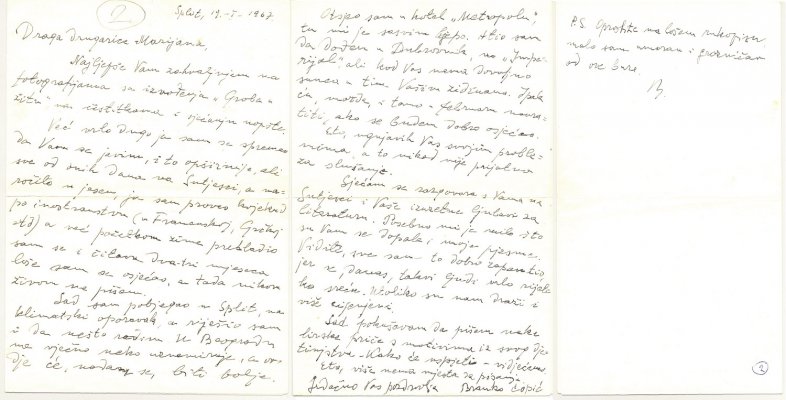 2
Split, 19-I-1967
Draga drugarice Marijana,
Najljepše Vam zahvaljujem na
fotografijama sa izvođenja „Groba u
žitu" na čestitkama i sjećanju uopšte.
Već vrlo dugo ja sam se spremao
da Vam se javim, i to opširnije, ali
sve od onih dana na Sutjesci, a na-
ročito u jesen, ja sam proveo kojekud
po inostranstvu (u Francuskoj, Grčkoj
itd) a već početkom zime prehladio
sam se i čitava dva-tri mjeseca
loše sam se osjećao, a tada nikom
živom ne pišem.
Sad sam pobjegao u Split, na
klimatski oporavak, a riješio sam
i da nešto radim. U Beogradu
me vječno neko uznemiruje, a ov-
dje će, nadam se, biti bolje.
Otsjeo sam u hotel „Metropolu",
tu mi je sasvim lijepo. Htio sam
da dođem u Dubrovnik, na „Impe-
rijal" ali kod Vas nema dovoljno
sunca u tim Vašim zidinama. Ipak
ću, možda, i tamo u februaru navra-
titi, ako se budem dobro osjećao.
Eto, ugnjavih Vas svojim proble-
mima, a to nikad nije prijatno
za slušanje.
Sjećam se razgovora s Vama na
Sutjesci i Vaše izuzetne ljubavi za
literaturu. Posebno mi je milo što
su Vam se dopale i moje pjesme.
Vidite, sve sam to dobro zapamtio
jer se, danas, takvi ljudi vrlo rijet-
ko sreću, utoliko su nam draži i
više cijenjeni.
Sad pokušavam da pišem neke
lirske priče s motivima iz svog dje-
tinjstva. Kako će uspjeti - vidjećemo.
Eto, više nema mjesta za pisanje.
Srdačno Vas pozdravlja Branko Ćopić
P.S. Oprostite na lošem rukopisu
malo sam umoran i grozničav
od ove bure.
B.
2